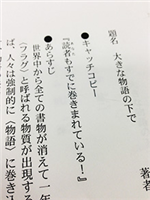 題名　大きな物語の下で
著者
●キャッチコピー
『読者もすでに巻きまれている！』
●あらすじ
世界中から全ての書物が消えて一年
（フラグ）と呼ばれる物質が出現する
ば、人々は強制的に〈物語〉に巻き込